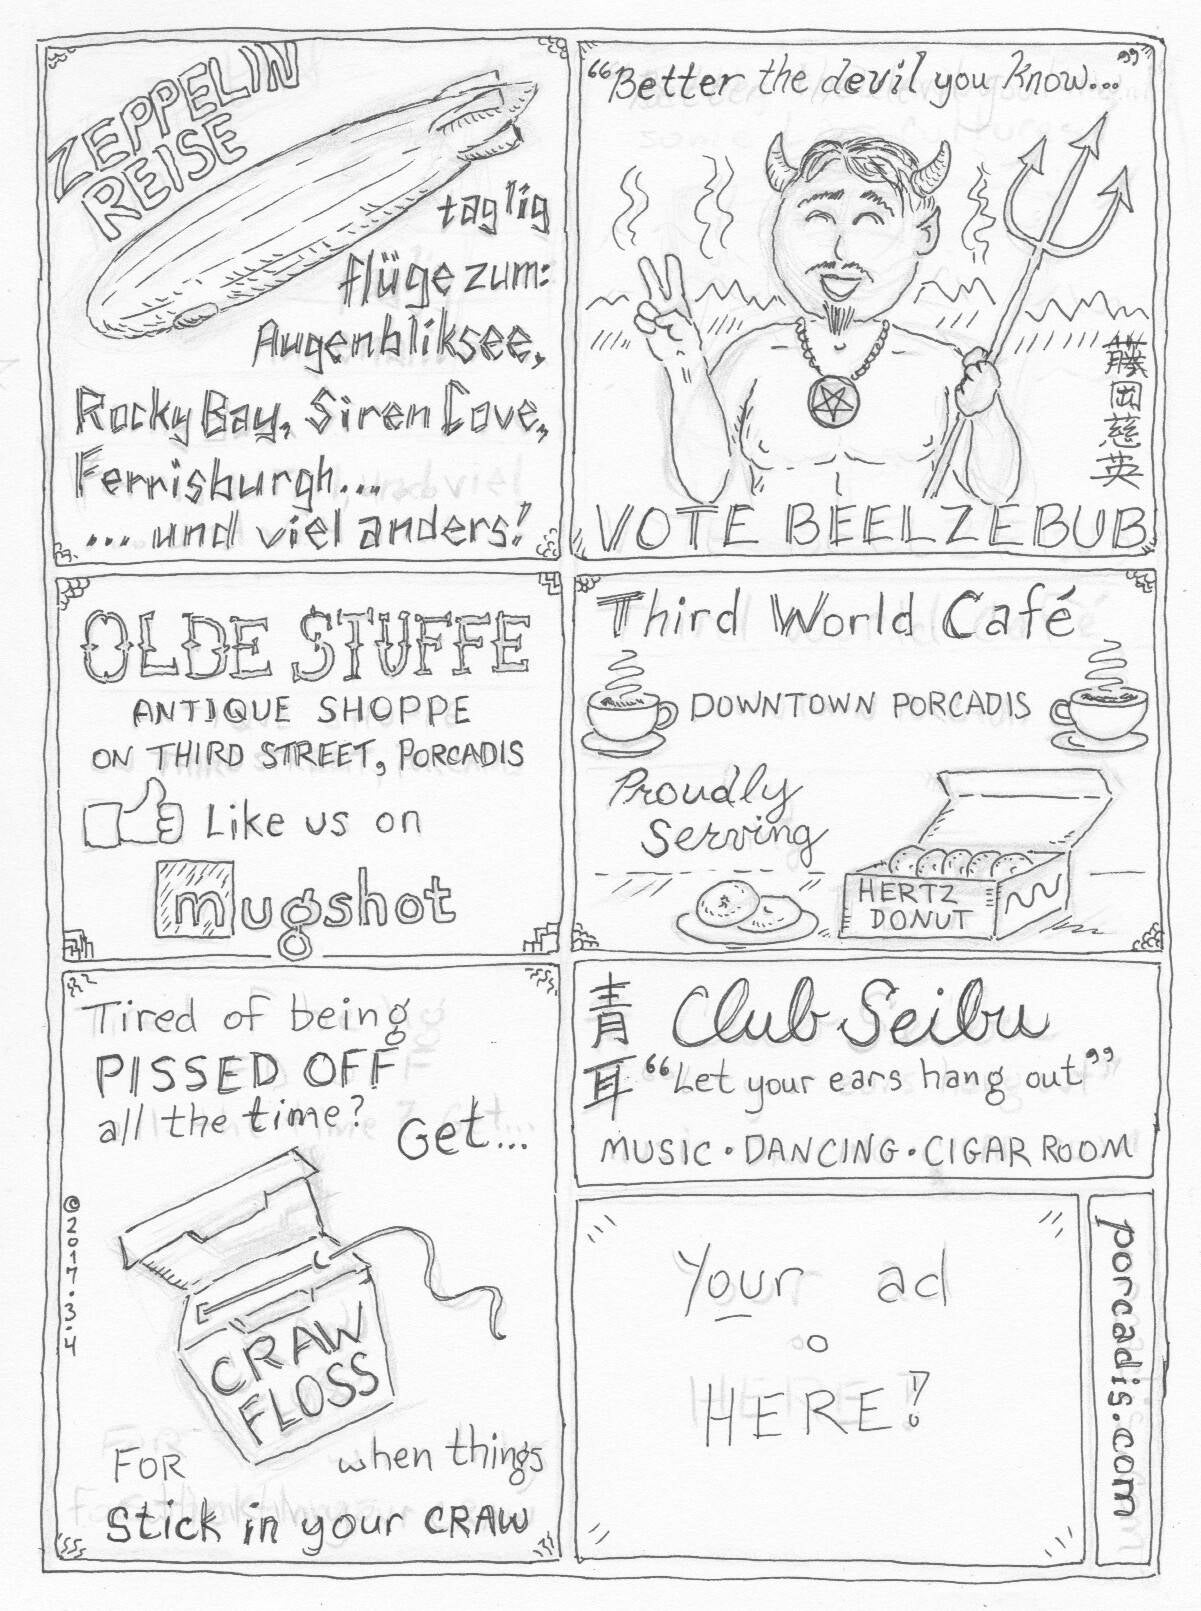 ZEPPELIN
REISE
taglig
flüge zum:
Augenbliksee,
Rocky Bay, Siren Cove,
Ferrisburgh...
...und viel anders!
“Better the devil you know...”
藤岡慈英
VOTE BEELZEBUB
OLDE STUFFE
ANTIQUE SHOPPE
ON THIRD STREET, PORCADIS
Like us on
mugshot
Third World Café
DOWNTOWN PORCADIS
Proudly
Serving
HERTZ
DONUT
Tired of being
PISSED OFF
all the time?
Get...
CRAW
FLOSS
FOR when things
stick in your CRAW
©2017.3.4
青耳
Club Seibu
“Let your ears hang out”
MUSIC • DANCING • CIGAR ROOM
Your ad
HERE!
porcadis.com